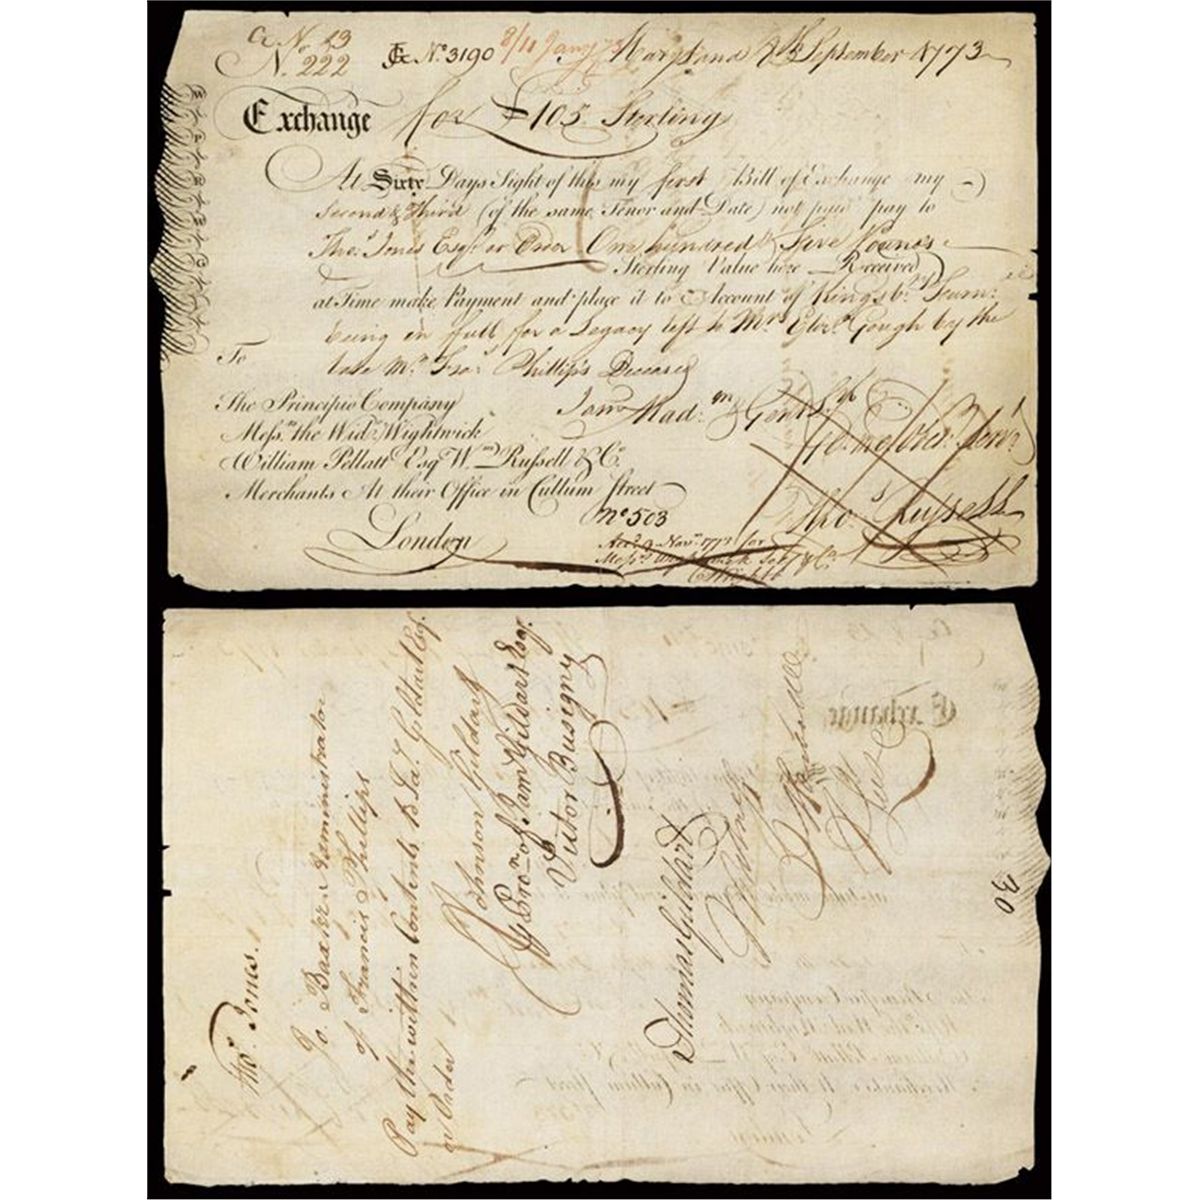 Ce N. 13
N. 222
No. 3190
8/11 Jany 
Maryland 7th September 1773
Exchange for £105 Sterling
At Sixty Days Sight of this my first Bill of Exchange my
Second & Third (of the same Tenor and Date) not paid pay to
Thos. Jones Esqr. or Order One hundred & Five Pounds
Sterling Value here Received
at Time make Payment and place it to Account of Kingsby. Furne.
being in full for a Legacy left to Mrs. Gough by the
late Mr. Fras. Phillips Deceased
To
The Principio Company
Messrs. the Wid. Wightwick
William Pellatt Esq Wm. Russell & Co.
Merchants At their Office in Cullum Street
London
I am Mad.m & Gent.
Yo. most Obt. Servt.
Thos. Russell
No. 503
Nov.
Messrs.
& Co.
Thos. Jones.
Jo. Baxter Administrator
of Francis Phillips
Pay the within Contents to Ja. Gildart Esq.
or Order
Johnson Gildart
Pror. of Saml Gildart Esq.
Victor Busigny
Thomas Gildart
Exchange
30